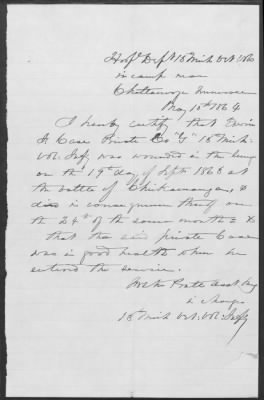 Hosp't Dep't 18 Mich Vet. Vols
in camp near
Chattanooga Tennessee
May 18th 1864
I hereby certify that
A Case Private Co "G" 18th Mich.
Vol. Inf, was wounded in the lung
on the 19th day of Sept. 1863 at
the battle of Chickamauga, &
died in consequence thereof on
the 24th of the same month &
that the said private Case
was in good health when he
entered the service.
Pratt Asst Surg
in charge
18th Mich Vet. Vol: Inf'y